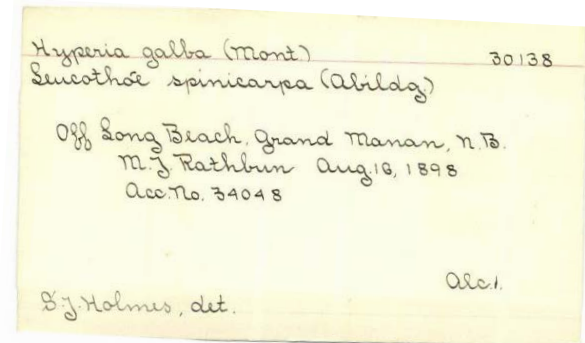 Hyperia galba (Mont.) 30138
Leucothöe spinicarpa (Abildg.)
Off Long Beach, Grand Manan, N.B.
M.J. Rathbun Aug. 16, 1898
Acc. No. 34048
Alc. 1.
S.J. Holmes, det.